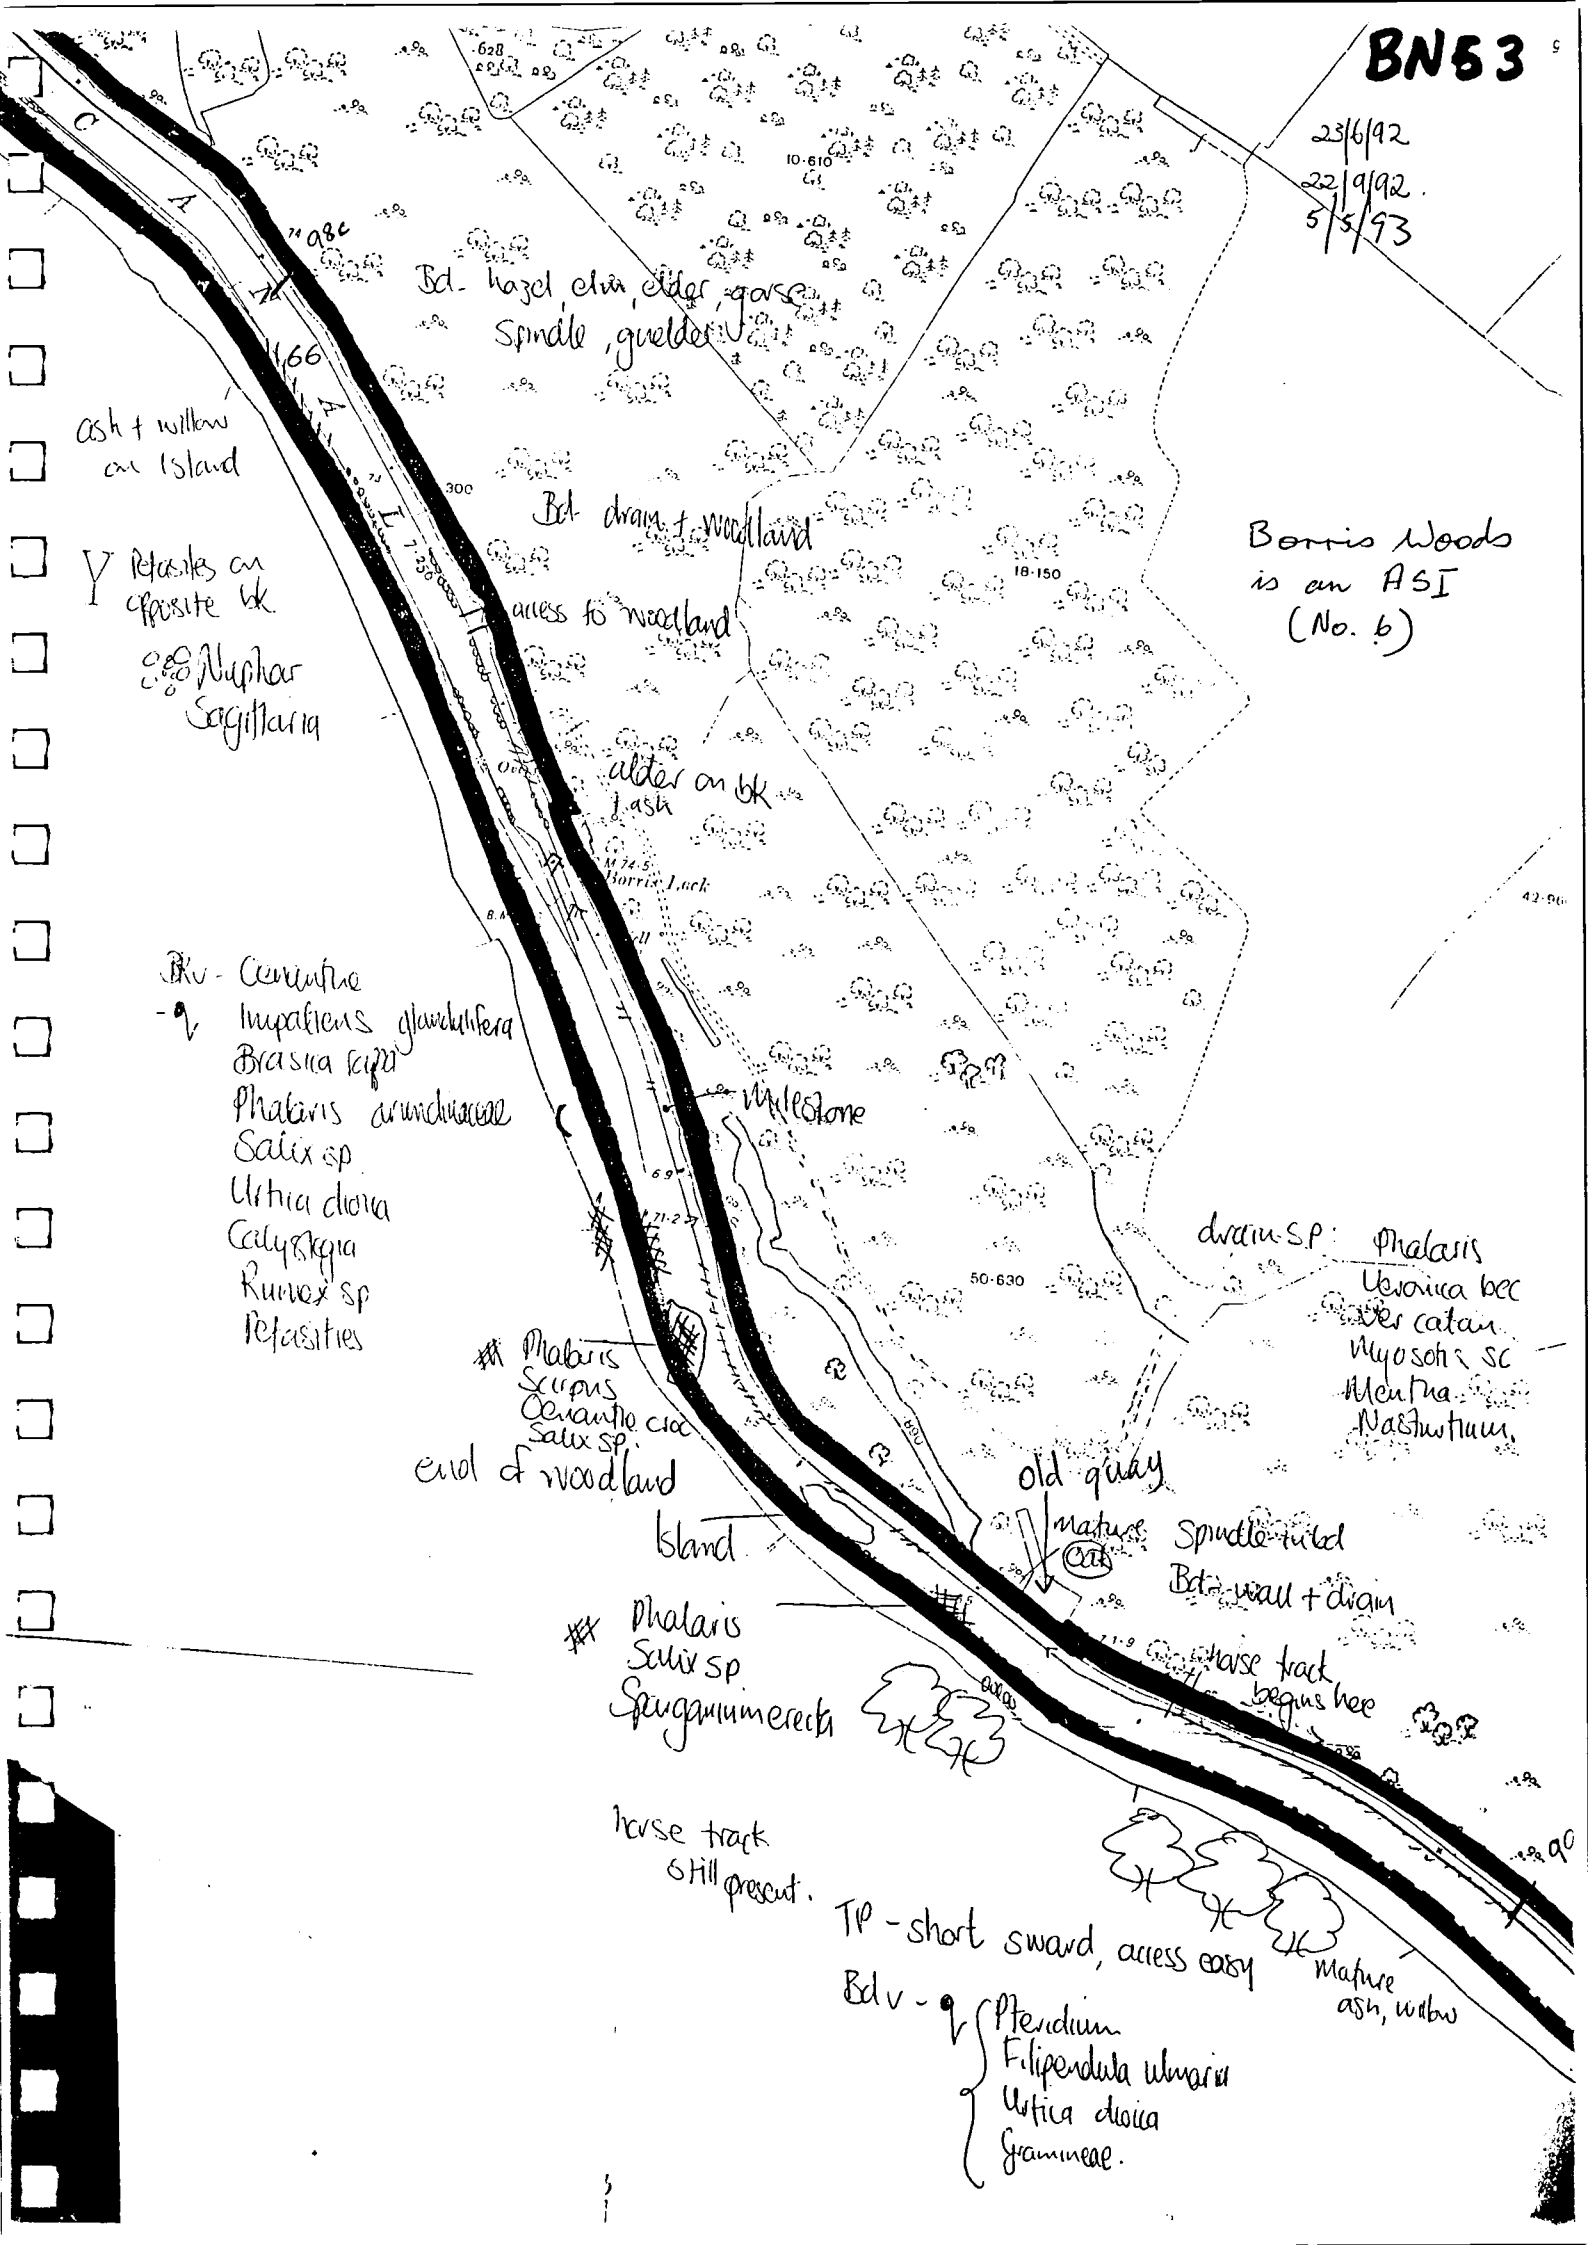 BN53
23/6/92
22/9/92.
5/5/93
.628
10.610
C
A
A
A
L
74
98c
66
Bd - hazel, elm, elder, gorse
Spindle, guelder
ash + willow
on Island
300
Bd - drain + woodland
18.150
Borris Woods
is an ASI
(No. 6)
Petasites on
opposite bk.
access to woodland
Nuphar
Sagittaria
alder on bk
+ ash
M 74.5
Borris Lock
B.M
Bkv - Oenanthe
- q Impatiens glandulifera
Brasica rapa
Phalaris arundinaceae
Salix sp
Urtica dioica
Calystegia
Rumex sp
Petasities
milestone
69
71.2
50.630
drain sp: Phalaris
Veronica bec
Ver catan
Myosotis sc
Mentha
Nasturtium.
Phalaris
Scirpus
Oenanthe croc
Salix sp.
end of woodland
Island
old quay
mature
oak
Spindle
Bd - wall + drain
Phalaris
Salix sp
Sparganium erecta
71.9
horse track
begins here
horse track
still present.
TP - short sward, access easy
mature
ash, willow
Bdv - q Pteridium
Filipendula ulmaria
Urtica dioica
Gramineae.